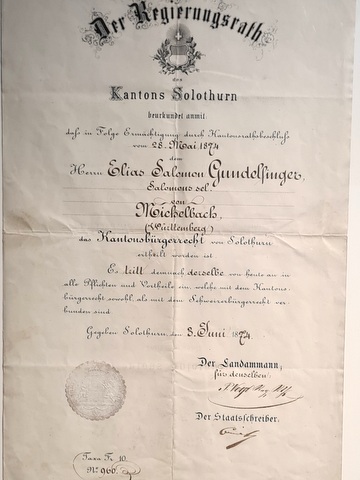 Der Regierungsrath
des
Kantons Solothurn
beurkundet anmit
daß in Folge Ermächtigung durch Kantonsrathsbeschluß
vom 28. Mai 1874
dem
Herrn Elias Salomon Gundelfinger,
Salomons sel.
von
Michelbach,
(Württemberg)
das Kantonsbürgerrecht von Solothurn
ertheilt worden ist
Es tritt demnach derselbe von heute an in
alle Pflichten und Vortheile ein, welche mit dem Kantons-
bürgerrecht sowohl, als mit dem Schweizerbürgerrecht ver-
bunden sind.
Gegeben Solothurn, den 3. Juni 1874.
Der Landammann;
für denselben:
Der Staatsschreiber.
Taxa Fr. 10.
No. 966.